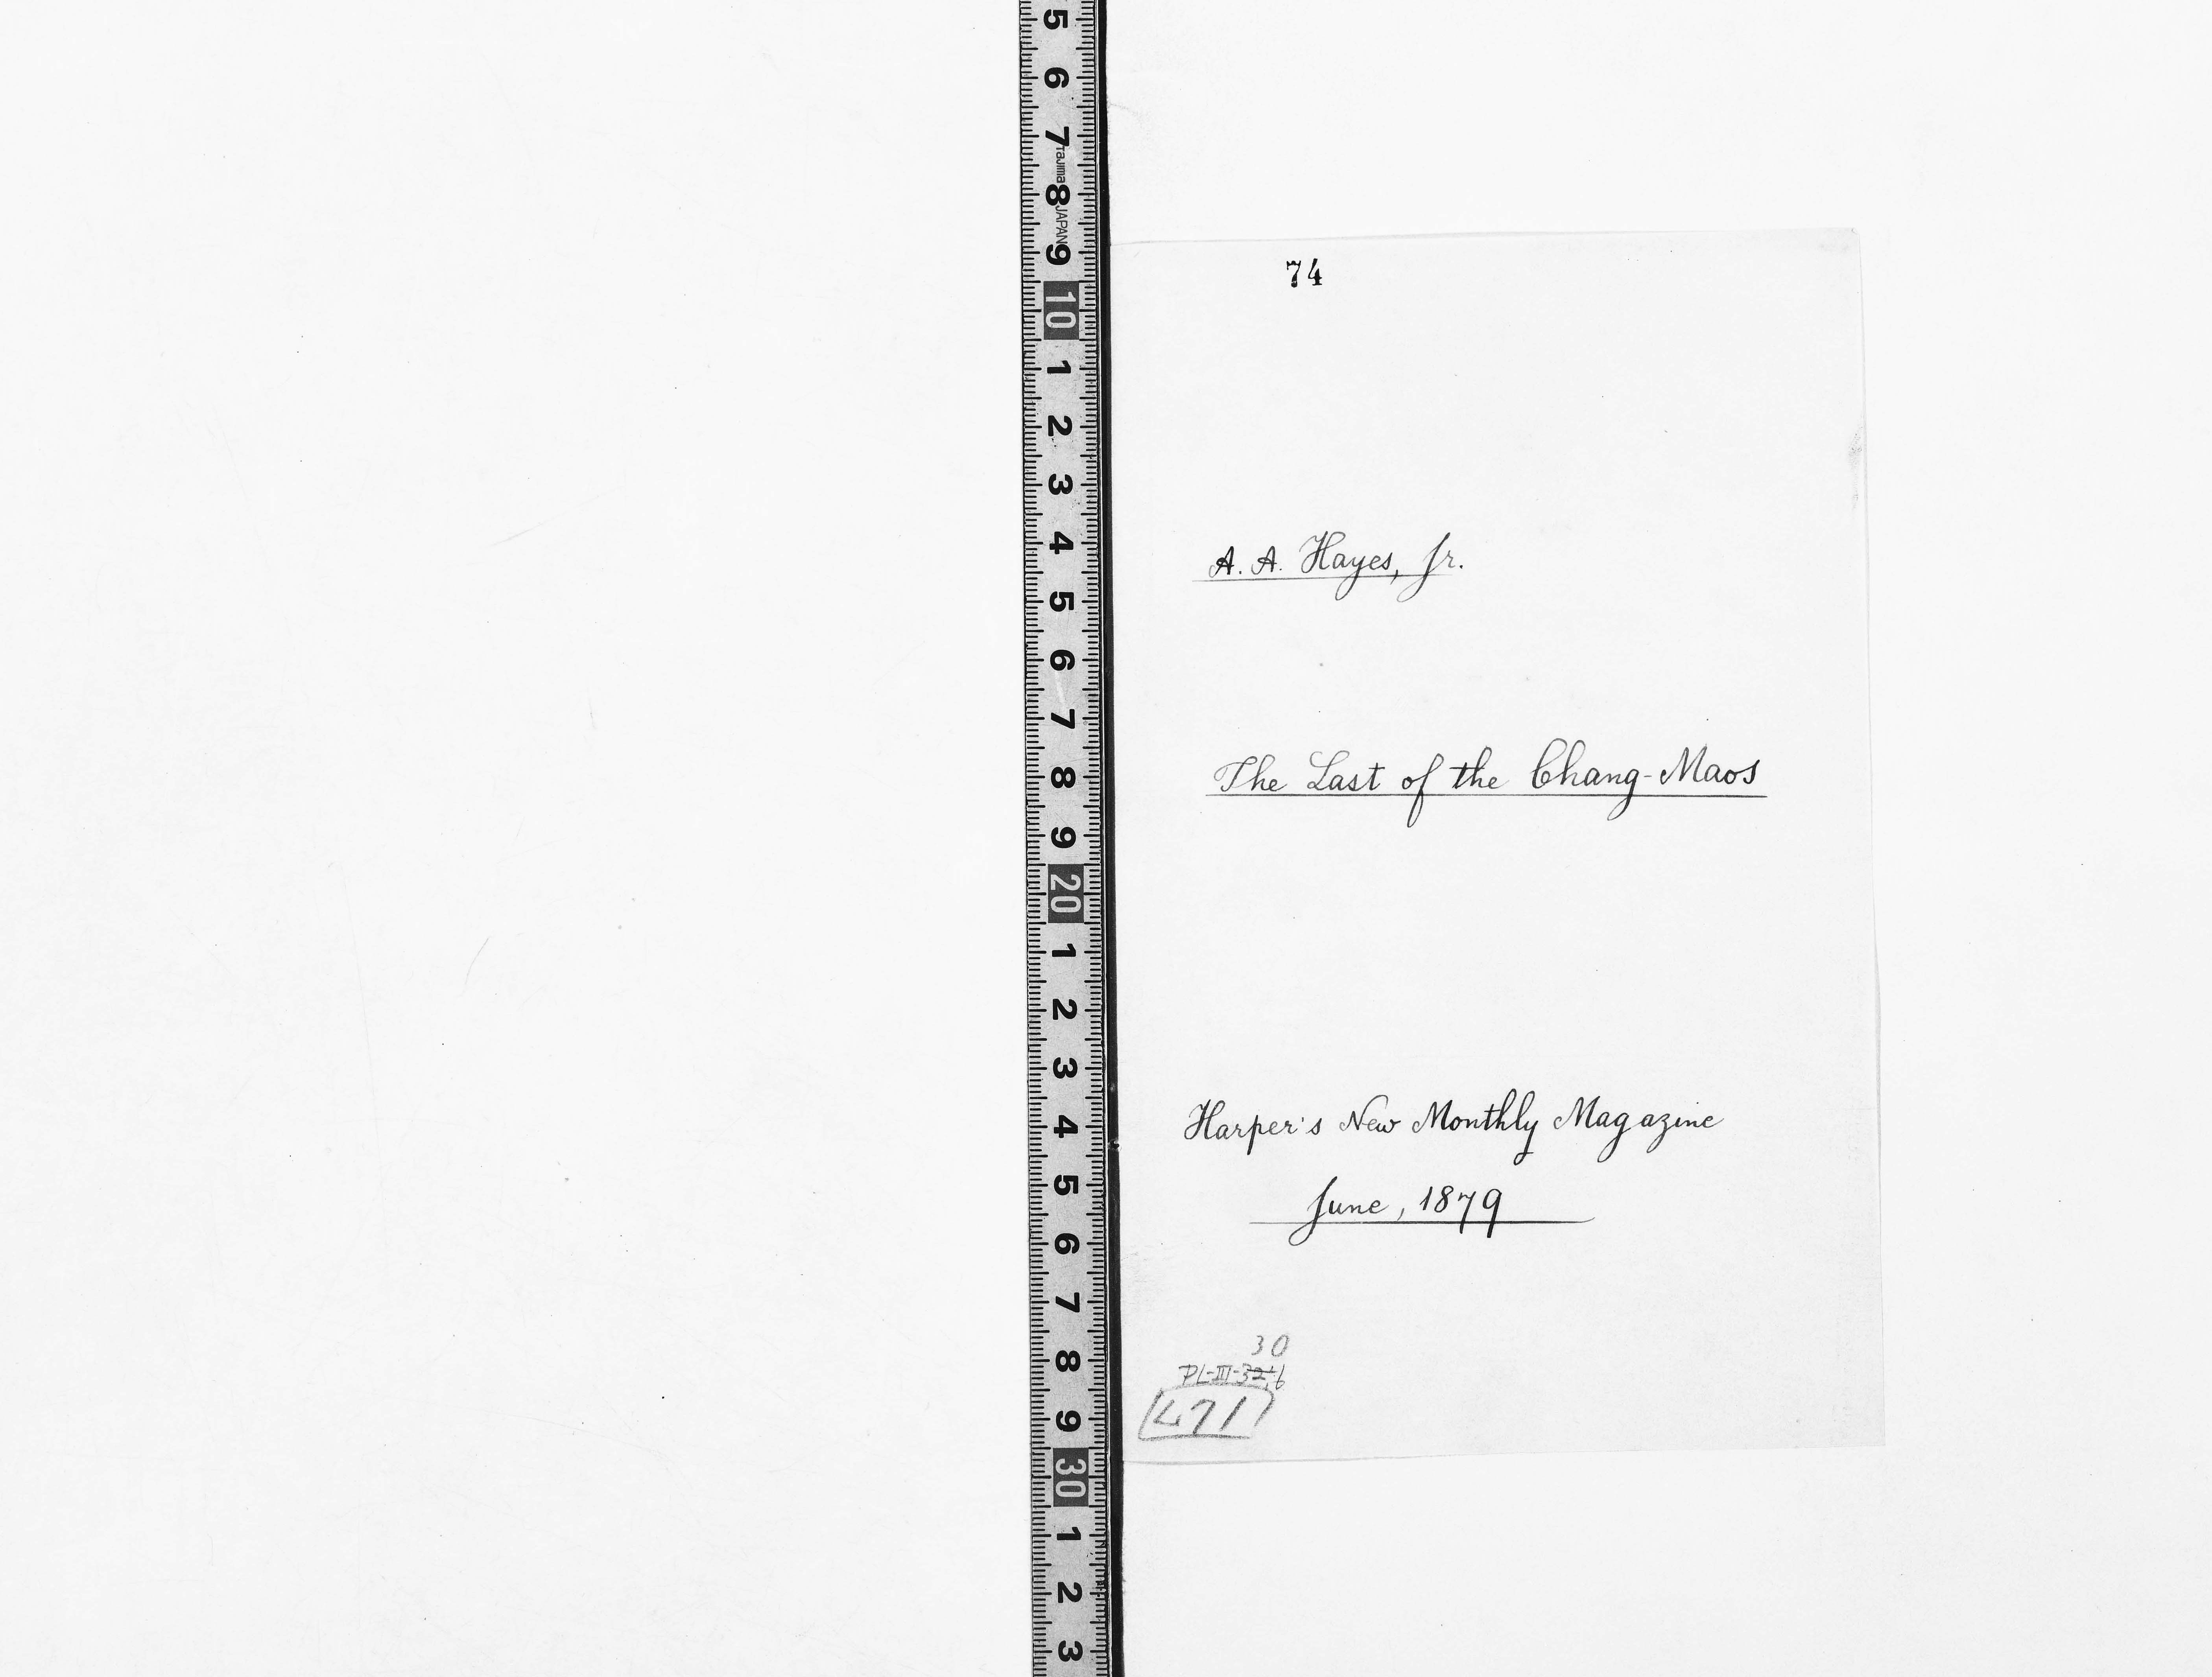 5
6
7
Tajima
8
JAPAN
9
10
1
2
3
4
5
6
7
8
9
20
1
2
3
4
5
6
7
8
9
30
1
2
3
74
A. A. Hayes, Jr.
The Last of the Chang-Maos
Harper's New Monthly Magazine
June, 1879
30
PL-III-32,6
471